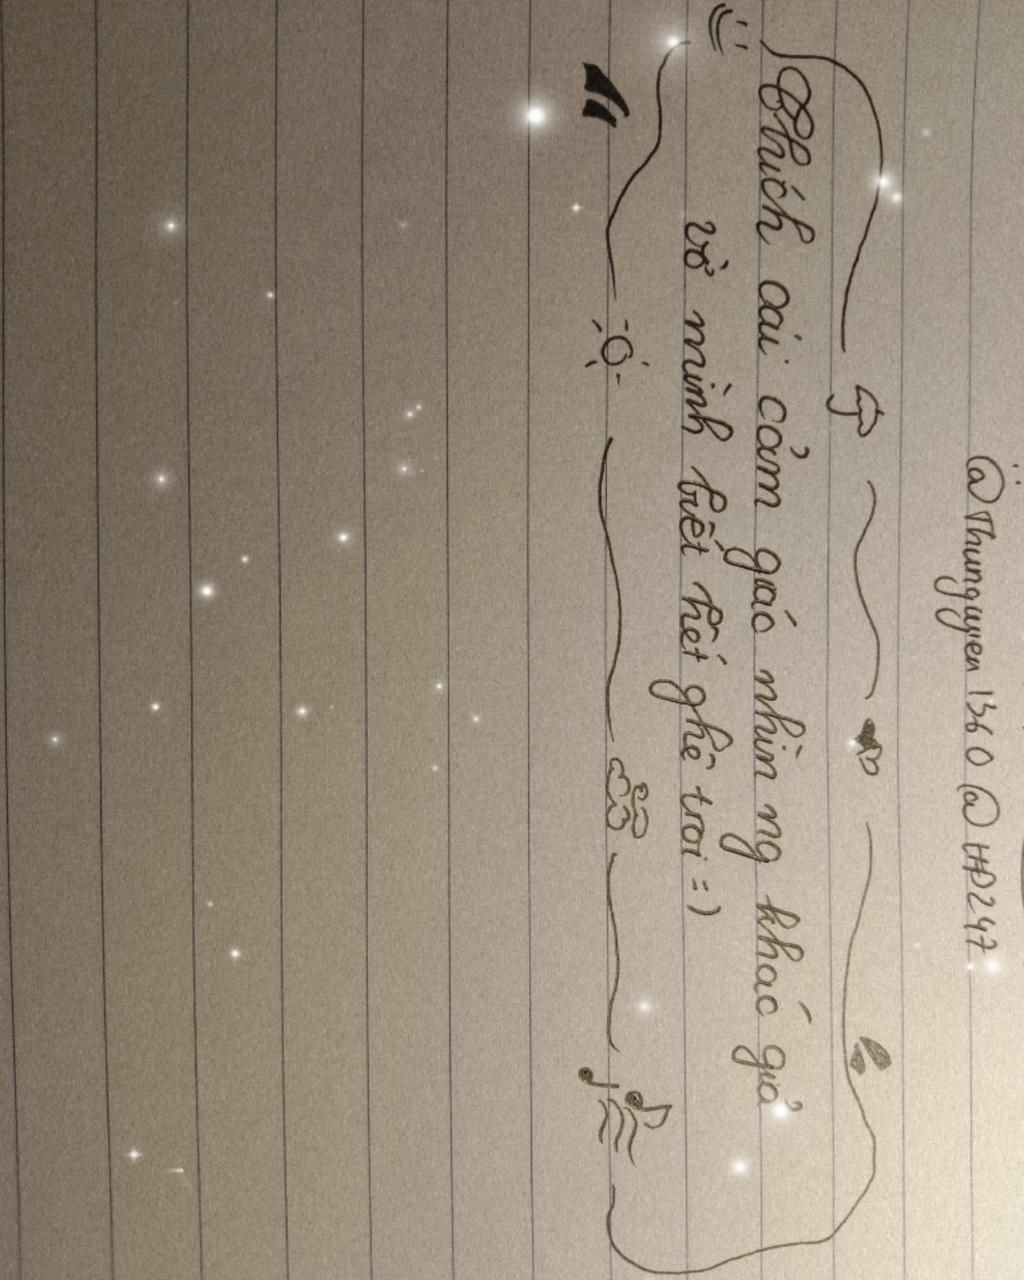 @Thunguyen1360 @HD247
Thích cái cảm giác nhìn ng khác giả
vờ mình biết hết ghê trơi =)